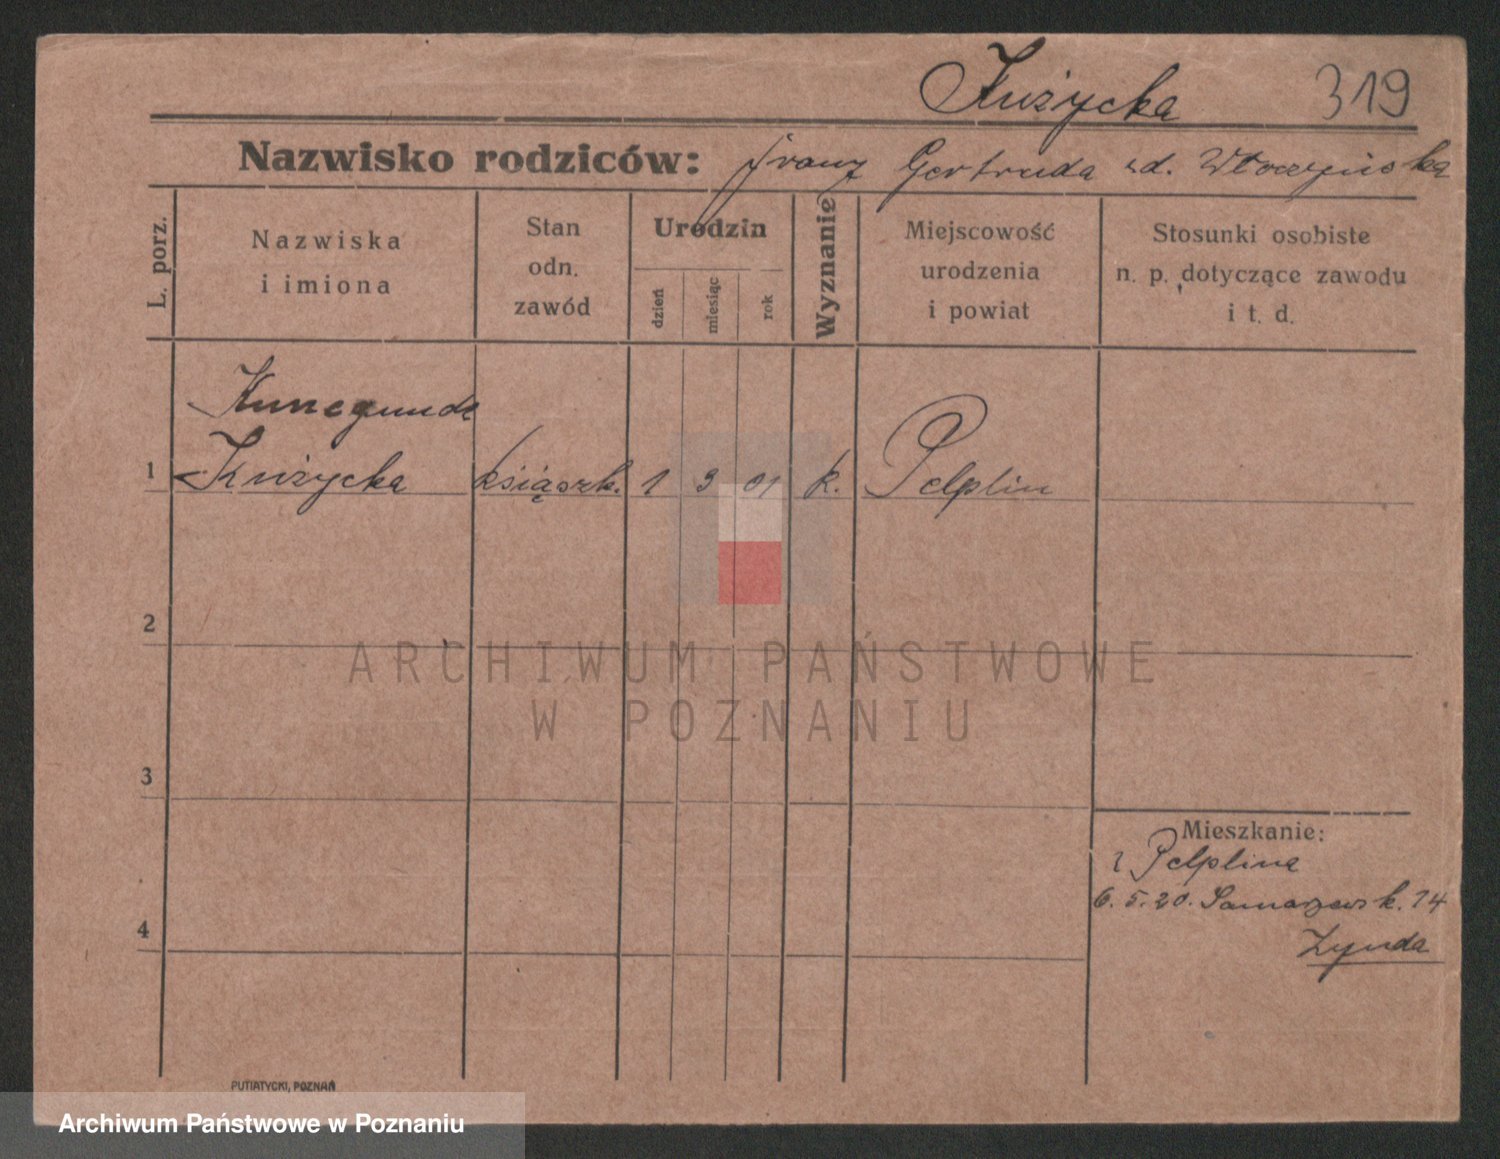 Kużycka 319
Nazwisko rodziców: Franz Gertruda
L. porz.
Nazwiska
i imiona
Stan
odn.
zawód
Urodzin
dzień
miesiąc
rok
Wyznanie
Miejscowość
urodzenia
i powiat
Stosunki osobiste
n. p. dotyczące zawodu
i t. d.
Kunegunda
1 Kużycka książk. 1 3 01 k. Pelplin
2
ARCHIWUM PAŃSTWOWE
W POZNANIU
3
Mieszkanie:
z Pelplina
6. 5. 20. 14
4
Zynda
PUTIATYCKI, POZNAŃ
Archiwum Państwowe w Poznaniu